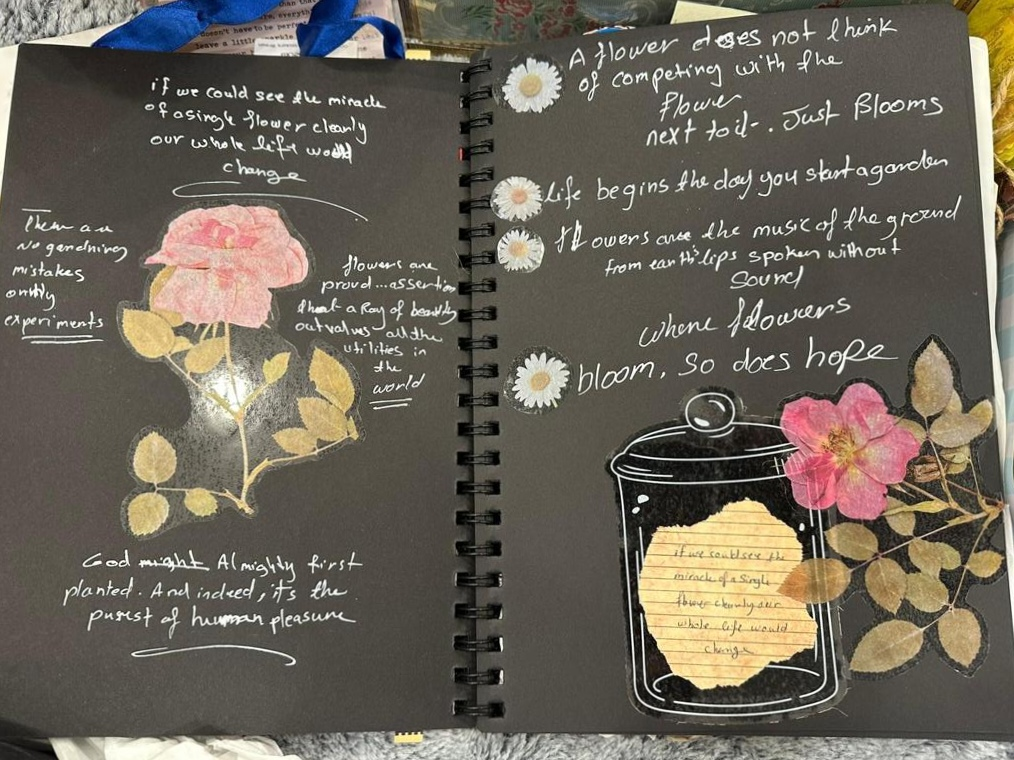 everything
doesn't have to be perfe
leave a little
if we could see the miracle
of a single flower cleanly
our whole life would
change
There are
No gardning
mistakes
onhly
experiments
flowers are
proud... assertion
that a Ray of beauty
outvalues all the
utilities in
the
world
God might Almighty first
planted. And indeed, it's the
purest of human pleasure
A flower does not think
of competing with the
flower
next to it. Just Blooms
life begins the day you start a garden
flowers are the music of the ground
from earth's lips spoken without
Sound
where flowers
bloom, so does hope
if we could see the
miracle of a single
flower cleanly our
whole life would
change